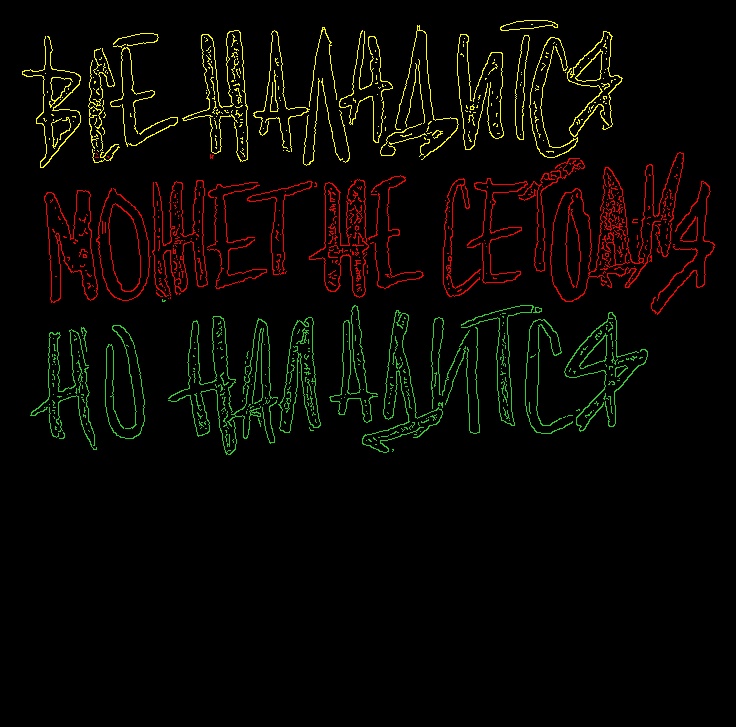 ВСЕ НАЛАДИТСЯ
МОЖЕТ НЕ СЕГОДНЯ
НО НАЛАДИТСЯ